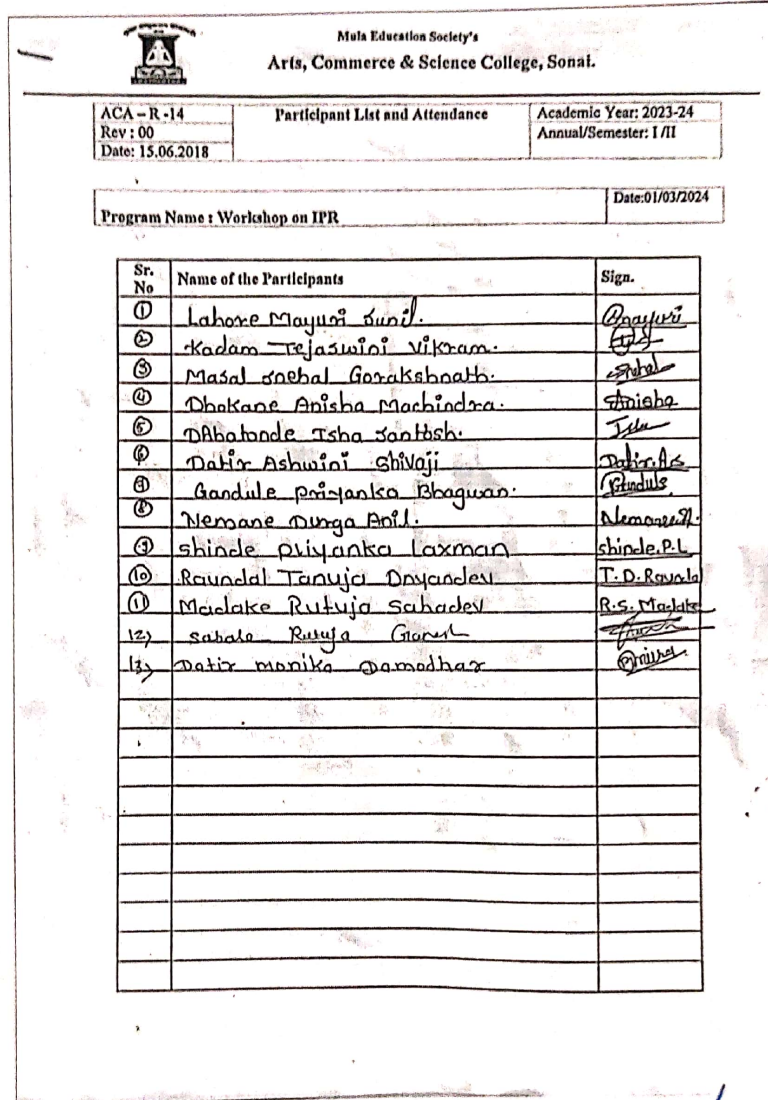 Mula Education Society's
Arts, Commerce & Science College, Sonai.
ACA – R -14
Rev : 00
Date: 15.06.2018
Participant List and Attendance
Academic Year: 2023-24
Annual/Semester: I /II
Program Name : Workshop on IPR
Date:01/03/2024
Sr. No Name of the Participants Sign.
1 Lahore Mayuri Sunil. Mayuri
2 Kadam Tejaswini Vikram.
3 Masal Snehal Gorakshnath. Snehal
4 Dhokane Anisha Machindra. Anisha
5 DAhatonde Isha Santosh. Isha
6 Datir Ashwini Shivaji Datir.As
7 Gandule priyanka Bhagwan. Gandule
8 Nemane Durga Anil.
9 shinde Priyanka Laxman shinde.P.L
10 Raundal Tanuja Dnyandev T.D.Raundal
11 Madake Rutuja Sahadev R.S.Madake
12) sabale Rutuja Ganesh
13) Datir monika Damodhar